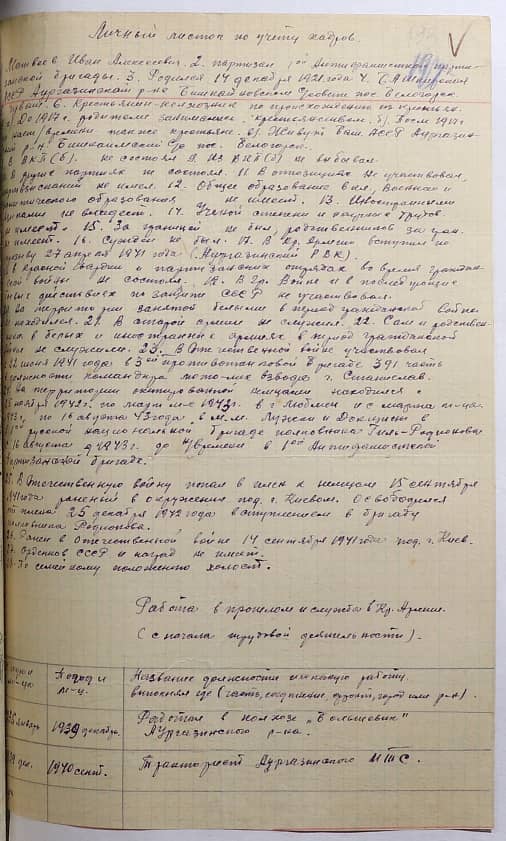 Личный листок по учёту кадров.
Матвеев Иван Алексеевич. 2. партизан 1ой Антифашистской парти-
занской бригады. 3. Родился 14 декабря 1921 года 4.
Аургазинский р-н
6. Крестьянин-колхозник по происхождению из крестьян.
а) До 1917 г. родители занимались крестьянством. б) После 1917 г.
времени также крестьяне. в) Живут Баш. АССР Аургазин-
ский р-н
В ВКП(б) не состоял 9. Из ВКП(б) не выбывал.
в других партиях не состоял. 11. В оппозициях не участвовал,
не имел. 12. Общее образование кл, военного и
политического образования не имеет. 13. Иностранными
языками не владеет. 14. Ученой степени и научных трудов
не имеет. 15. За границей не был, родственников за гран.
не имеет. 16. Судим не был. 17. В Кр. Армию вступил по
призыву 27 апреля 1941 года (Аургазинский РВК).
в Красной Гвардии и партизанских отрядах во время граждан-
ской войны не состоял. 19. В Гр. войне и в последующих
боевых действиях по защите СССР не участвовал.
На территории занятой белыми в период гражданской войны
не находился. 21. В старой армии не служил. 22. Сам и родствен-
ники в белых и иностранных армиях в период гражданской
войны не служили. 23. В Отечественной войне участвовал
22 июня 1941 года в 3ей противотанковой бригаде 391 часть
в должности командира взвода г. Станислав.
На территории оккупированной немцами находился с
ноября 1942 г. по март м-ц 1943 г. в г. Люблин и с марта м-ца
43 г. по 16 августа 43 года в м.м. Лужки и Докшицы в
1ой русской национальной бригаде полковника Гиль-Родионова
С 16 августа 1943 г. до н/времени в 1ой Антифашистской
партизанской бригаде.
25. В Отечественную войну попал в плен к немцам 15 сентября
1941 года раненый в окружении под г. Киевом. Освободился
от плена 25 декабря 1942 года вступлением в бригаду
полковника Родионова.
26. Ранен в отечественной войне 14 сентября 1941 года под г. Киев.
27. орденов СССР и наград не имеет.
28. По семейному положению холост.
Работа в прошлом и служба в Кр. Армии.
(с начала трудовой деятельности).
и год и м-ц
Название должности и какую работу
выполнял где (часть, соединение, фронт, город или р-н).
январь
1939 декабрь.
Работал в колхозе „Большевик"
Аургазинского р-на.
дек.
1940 сент.
Тракторист Аургазинского МТС.